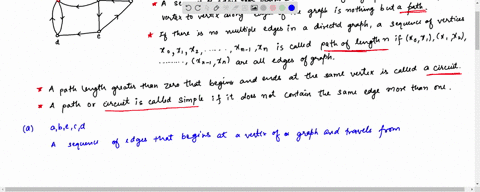 * A se
vertex to vertex along edges of the graph is nothing but a path.
* If there is no multiple edges in a directed graph, a sequence of vertices
x₀, x₁, x₂, ......, xₙ₋₁, xₙ is called path of length n if (x₀,x₁), (x₁,x₂),
........., (xₙ₋₁, xₙ) are all edges of graph.
* A path length greater than zero that begins and ends at the same vertex is called a circuit.
* A path or circuit is called simple if it does not contain the same edge more than one.
(a) a,b,e,c,d
A sequence of edges that begins at a vertex of a graph and travels from
d
c